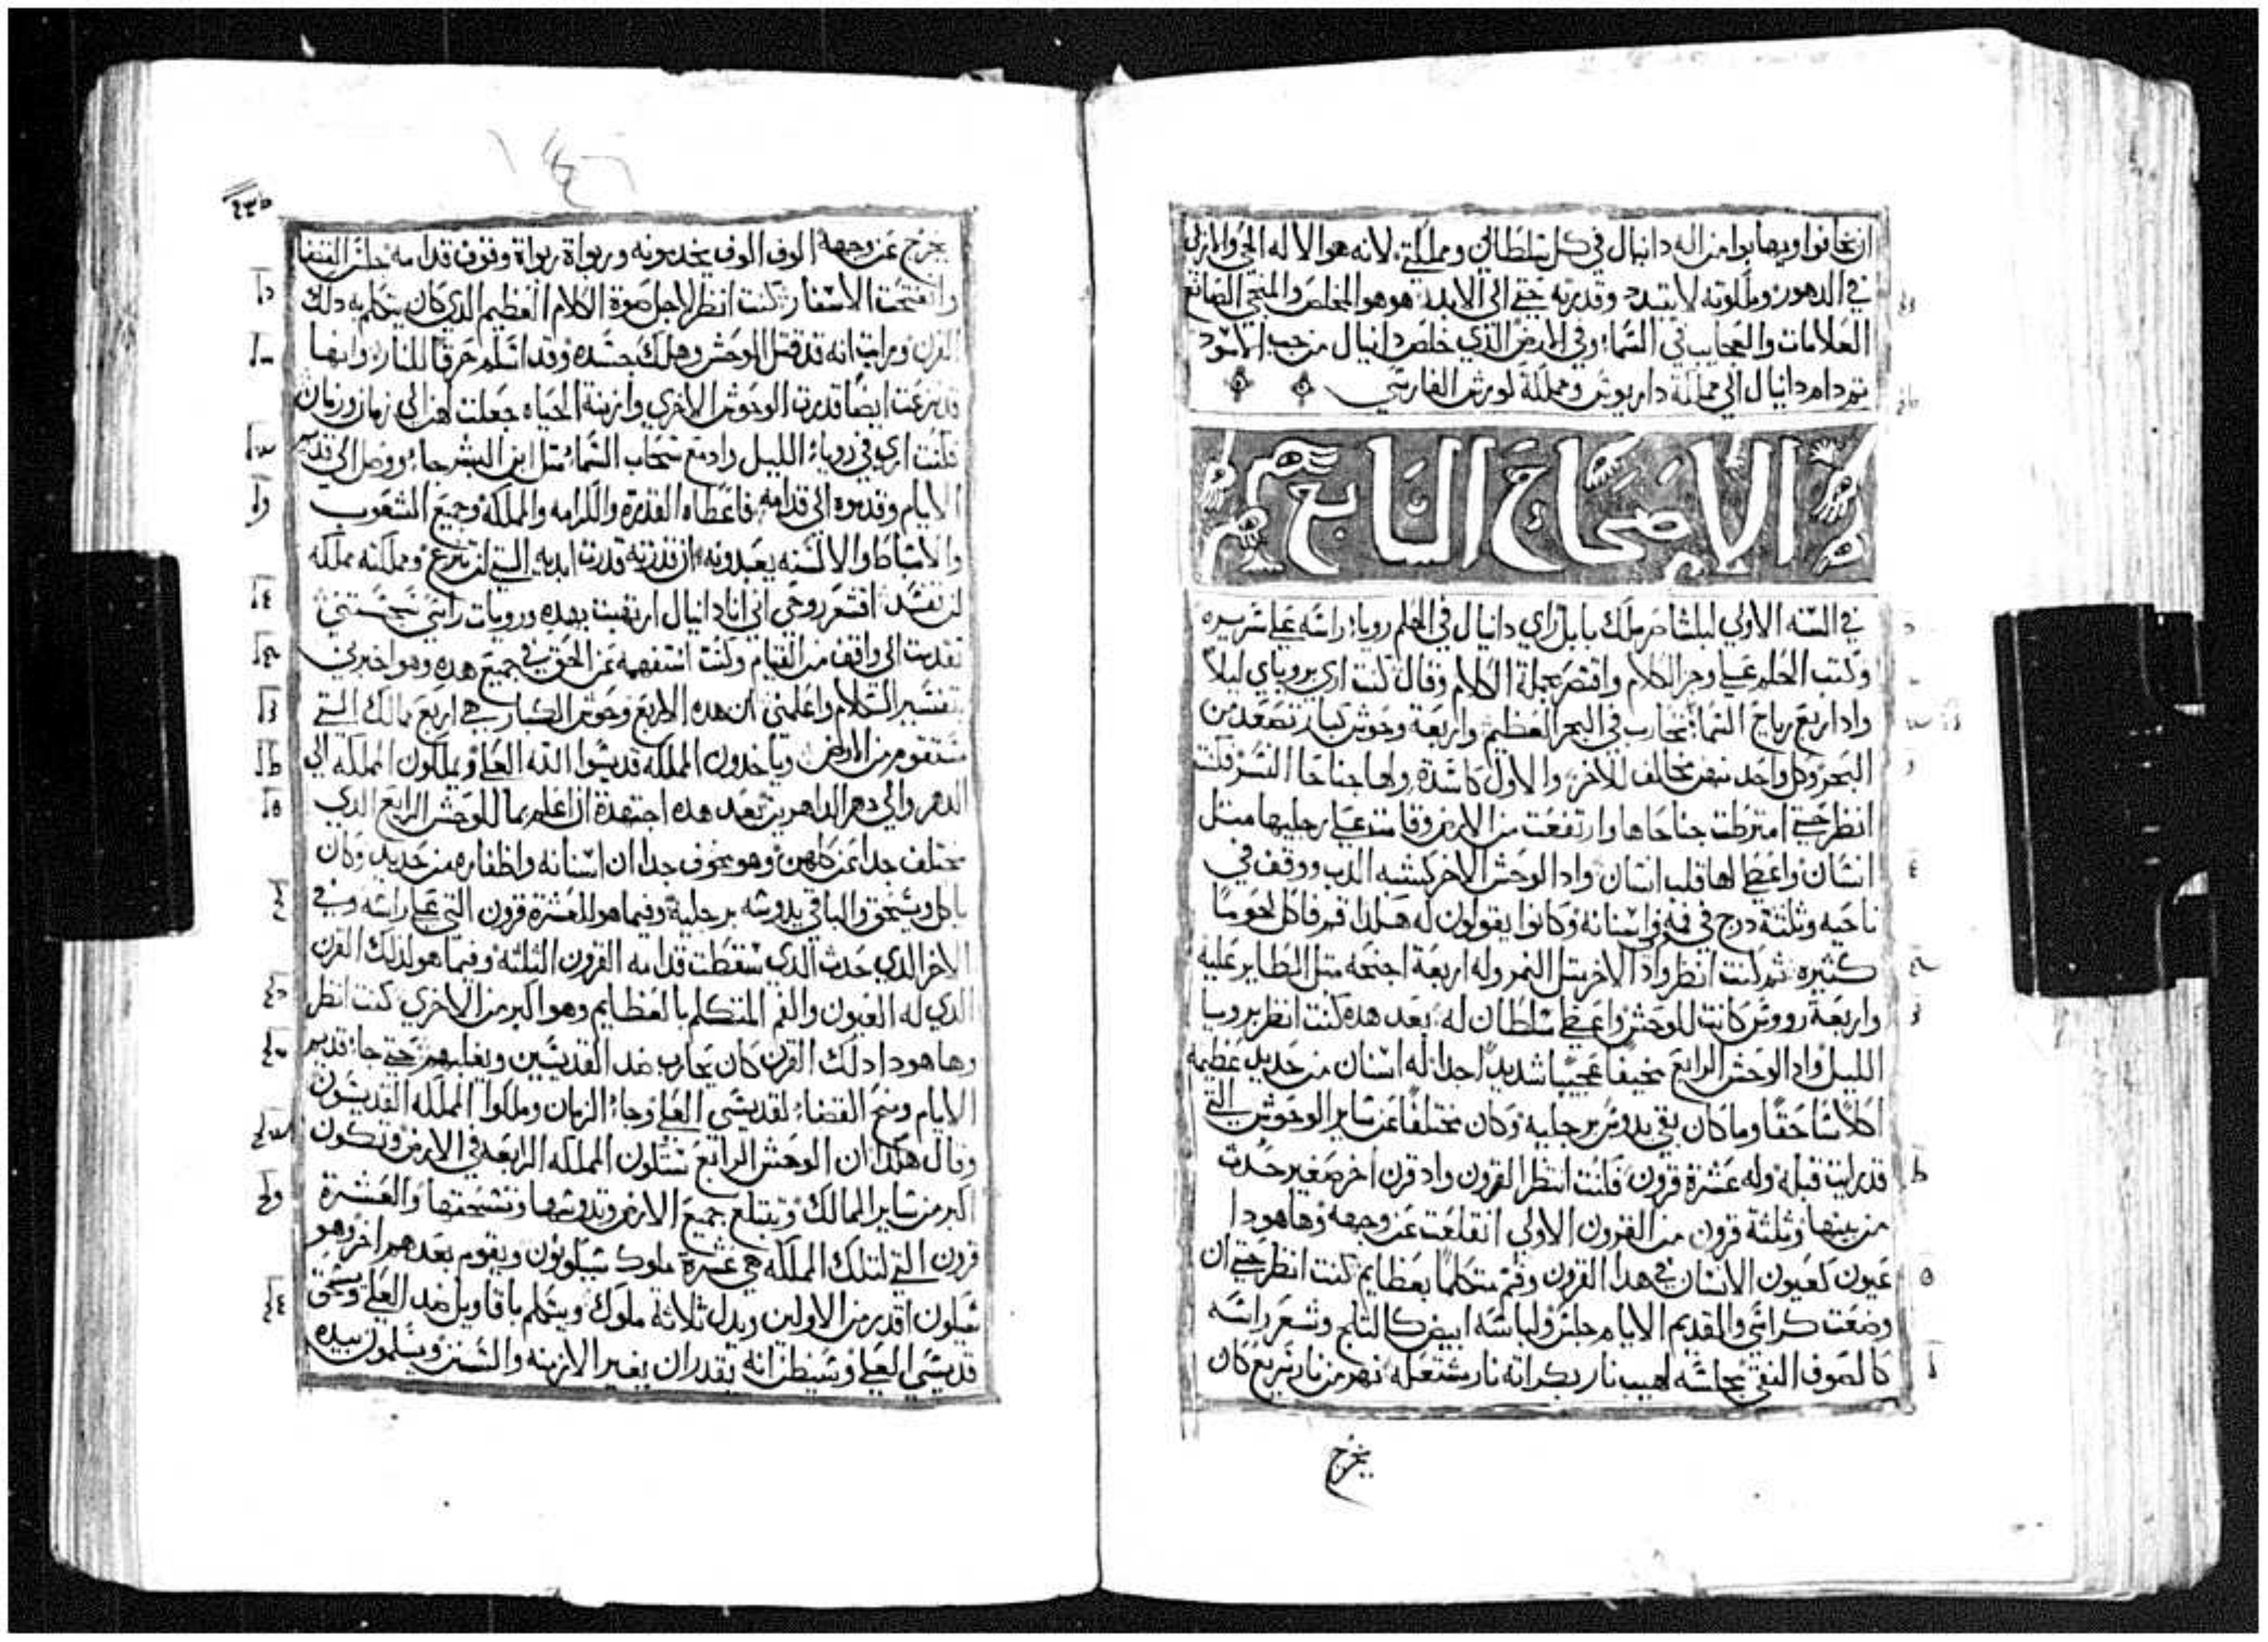 ان يخافوا ويهابوا من اله دانيال في كل سلطاني ومملكتي لانه هو الاله الحي والازلي
في الدهور وملكوته لا تتبدد وقدرته حتي الي الابد هو هو المخلص والمنجي الصانع
العلامات والعجايب في السما وفي الارض الذي خلص دانيال من جب الاسود
ثم دام دانيال الي مملكة داريوش ومملكة كورش الفارسي
الاصحاح السابع
في السنه الاولي لبلشاصر ملك بابل راي دانيال في الحلم رويا راسه علي سريره
وكتب الحلم علي وجز الكلام واقتصر بجملة الكلام وقال كنت اري بروياي ليلا
واذا اربع رياح السما تتحارب في البحر العظيم واربعة وحوش كبار تصعد من
البحر وكل واحد منهن مخالف للاخر والاول كاسدة ولها جناحا النسر فكنت
انظر حتي امترطت جناحاها وارتفعت من الارض وقامت علي رجليها مثل
انسان واعطي لها قلب انسان واذا الوحش الاخر كشبه الدب ووقف في
ناحيه وثلثة درج في فمه واسنانه وكانوا يقولون له هكذا قم فاكل لحوما
كثيره ثم كنت انظر واذا الاخر مثل النمر وله اربعة اجنحه مثل الطاير عليه
واربعة رووس كانت للوحش واعطي سلطان له بعد هذه كنت انظر بروسا
الليل واذا الوحش الرابع مخيفا عجيبا شديدا جدا له اسنان من حديد عظيمه
اكلا ساحقا وما كان بقي يدوس برجليه وكان مختلفا عن ساير الوحوش التي
قد رايت قبله وله عشرة قرون فكنت انتظر القرون واذ قرن اخر صغير حدث
من بينها وثلثة قرون من القرون الاولي انقلعت عن وجهه وها هوذا
عيون كعيون الانسان في هذا القرون وفم متكلما بعظايم كنت انظر حتي ان
وضعت كراسي والقديم الايام جلس ولباسه ابيض كالثلج وشعر راسه
كالصوف النقي مجلسه لهيب نار بكراته نار مشتعله نهر من نار سريع كان
يخرج
يخرج عن وجهه الوف الوف يخدمونه وربواة ربواة وقوف قدامه جلس القضا
وانفتحت الاسفار كنت انظر لاجل صوة الكلام العظيم الذي كان يتكلم به ذلك
القرن ورايت انه قد قتل الوحش وهلك جسده وقد اسلم حرقا للنار وانها
قد نزعت ايضا قدرت الوحوش الاخري وازمنة الحياه جعلت لهن الي زمان وزمان
فكنت اري في روياء الليل واذ مع سحاب السما مثل ابن البشر جاء ووصل الي قديم
الايام وقدموه الي قدامه فاعطاه القدره والكرامه والمملكه وجميع الشعوب
والاسباط والالسنه يعبدونه ان قدرته قدرت ابديه التي لن تنزع ومملكته مملكه
لن تفسد اقشعر روحي اني انا دانيال ارتعبت بهذه ورويات راسي سجستني
تقدمت الي واقف من القيام وكنت استفهمه عن الحق في جميع هذه وهو اخبرني
بتفسير الكلام واعلمني ان هذه الاربع وحوش الكبار هي اربع ممالك التي
ستقوم من الارض وياخذون المملكه قديسوا الله العلي ويملكون المملكه الي
الدهر والي دهر الداهرين بعد هذه اجتهدة ان اعلم بما للوحش الرابع الذي
مختلف جدا عن كلهن وهو مخوف جدا ان اسنانه واظفاره من حديد وكان
ياكل ويسحق والباقي يدوسه برجليه وفيما هو للعشرة قرون التي علي راسه وفي
الاخر الذي حدث الذي سقطت قدامه القرون الثلثه وفيما هو لذلك القرن
الذي له العيون والفم المتكلم بالعظايم وهو اكبر من الاخري كنت انظر
وها هوذا ذلك القرن كان يحارب ضد القديسين ويغلبهم حتي جا قديم
الايام ومنح القضاء لقديسي العلي وجاء الزمان وملكوا المملكه القديسون
وقال هكذا ان الوحش الرابع ستكون المملكه الرابعه في الارض وتكون
اكبر من ساير الممالك وتبتلع جميع الارض وتدوسها وتسحقها والعشرة
قرون التي لتلك المملكه هي عشرة ملوك سيكونون ويقوم بعدهم اخر وهو
سيكون اقدر من الاولين ويذل ثلاثة ملوك ويتكلم باقاويل ضد العلي ويسحق
قديسي العلي وسيظن انه يقدر ان يغير الازمنه والسنن ويسلمون بيده